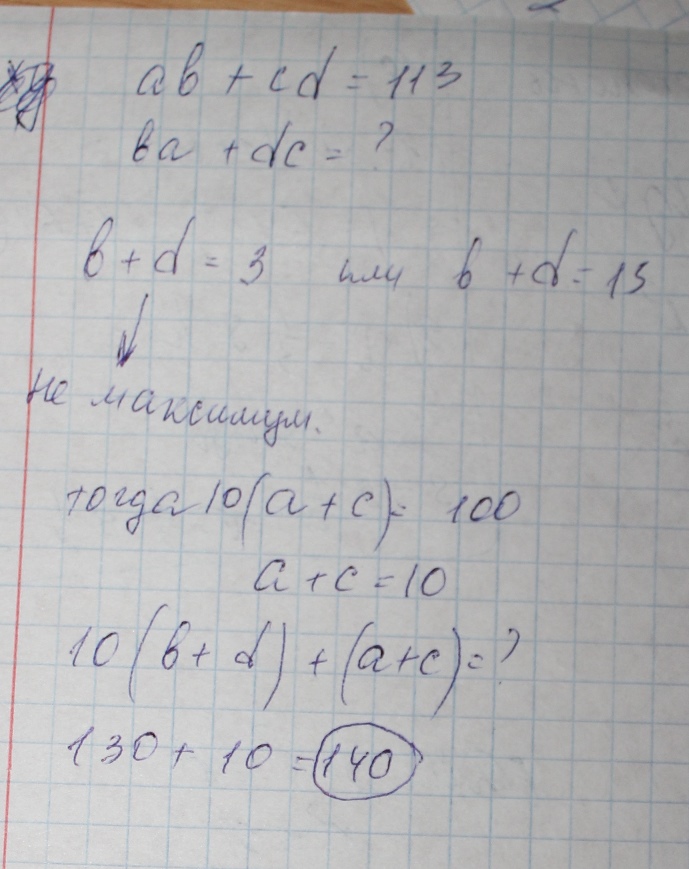 ав + cd = 113
ва + dc = ?
в + d = 3 или в + d = 13
не максимум.
тогда 10(а + с) = 100
а + с = 10
10(в + d) + (а + с) = ?
130 + 10 = 140